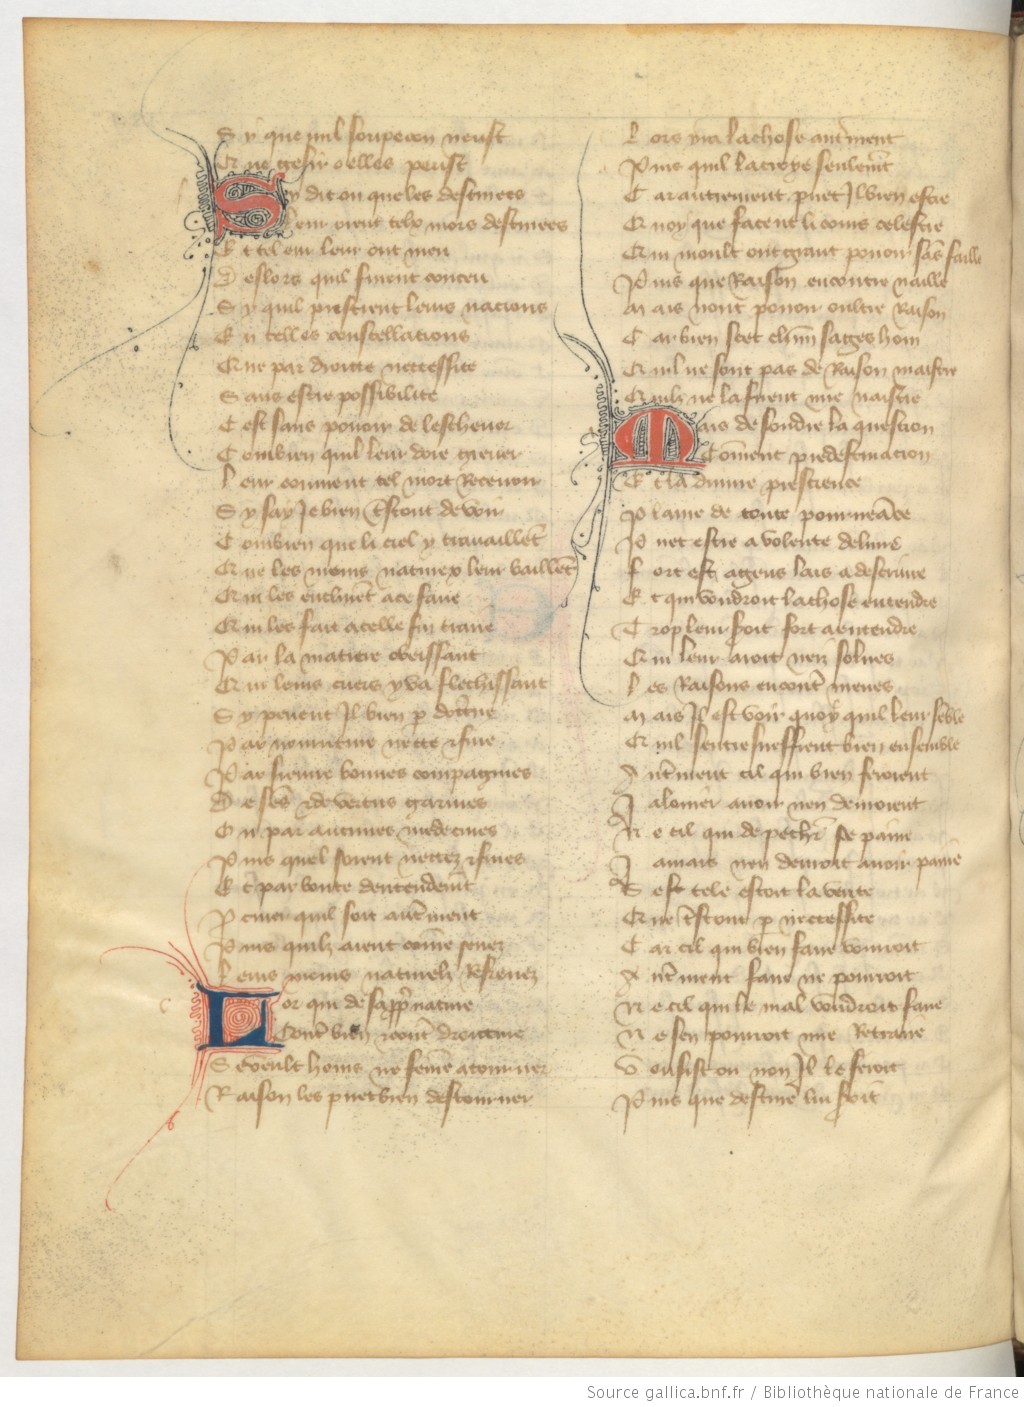 S y que nul soupecon neust
Et ne gesir o elles peust
Sy dit on que les destinees
Leur orent telx mors destinees
E t tel eur leur ont meu
D es lors quil furent conceu
S y quil prestrent leurs nacions
E n telles constellacions
Et ne par droitte neccessite
S ans estre possibilite
C est sans pouoir de leschever
C ombien quil leur doie grever
L eur couuient tel mort Receuoir
S y say Je bien tستout de voir
C ombien que li ciel y travaillent
Et ne les meurs naturex leur baillent
Qui les enclinent a ce faire
Qui les fait a celle fin traire
P ar la matiere obeissant
Qui leurs cuers y va flechissant
S y peuent Jl bien p dottrine
P ar nourriture nette & fine
P ar sieure bonnes compagnies
D e sens & de vertus garnies
O u par aucunes medecines
P uis quel soient nettez & fines
E t par bonte dentendement
P curer quil soit autrement
P uis quilz aient comme senez
L eurs meurs naturelz Refrenez
Lor qui de sa ppre nature
Contre bien & contre droitture
S e veult homs ne femme atourner
R aison les puet bien destourner
L ors yra la chose autrement
P uis quil la croye seulement
C ar autrement puet Jl bien estre
Et noy que facent li cours celestre
Qui moult ont grant pouoir sans faille
P uis que Raison encontre naille
M ais nont pouoir oultre Raison
C ar bien scet chun sages hom
Quil ne sont pas de Raison maistre
Quilz ne la firent mie naistre
Mais de soudre la question
Comment predestinacion
E t la diuine prescience
P laine de toute pourueance
P uet estre a volente deliure
F ort est a gens lais a descriure
E t qui voudroit la chose entendre
T rop leur seroit fort a entendre
Qui leur auroit neiz solues
L es Raisons encontre meues
M ais Jl est voir quoy quil leur semble
Quil sentresueffrent bien ensemble
A utrement cil qui bien feroient
J a louier auoir nen deuroient
N e cil qui de pechier se paine
J amais nen deuroit auoir paine
S e tele estoit la verite
Que tout p neccessite
C ar cil qui bien faire vouroit
A utrement faire ne pourroit
N e cil qui le mal voudroit faire
N e sen pourroit mie Retraire
V ousist ou non Jl le feroit
P uis que destine lui seroit
Source gallica.bnf.fr / Bibliothèque nationale de France